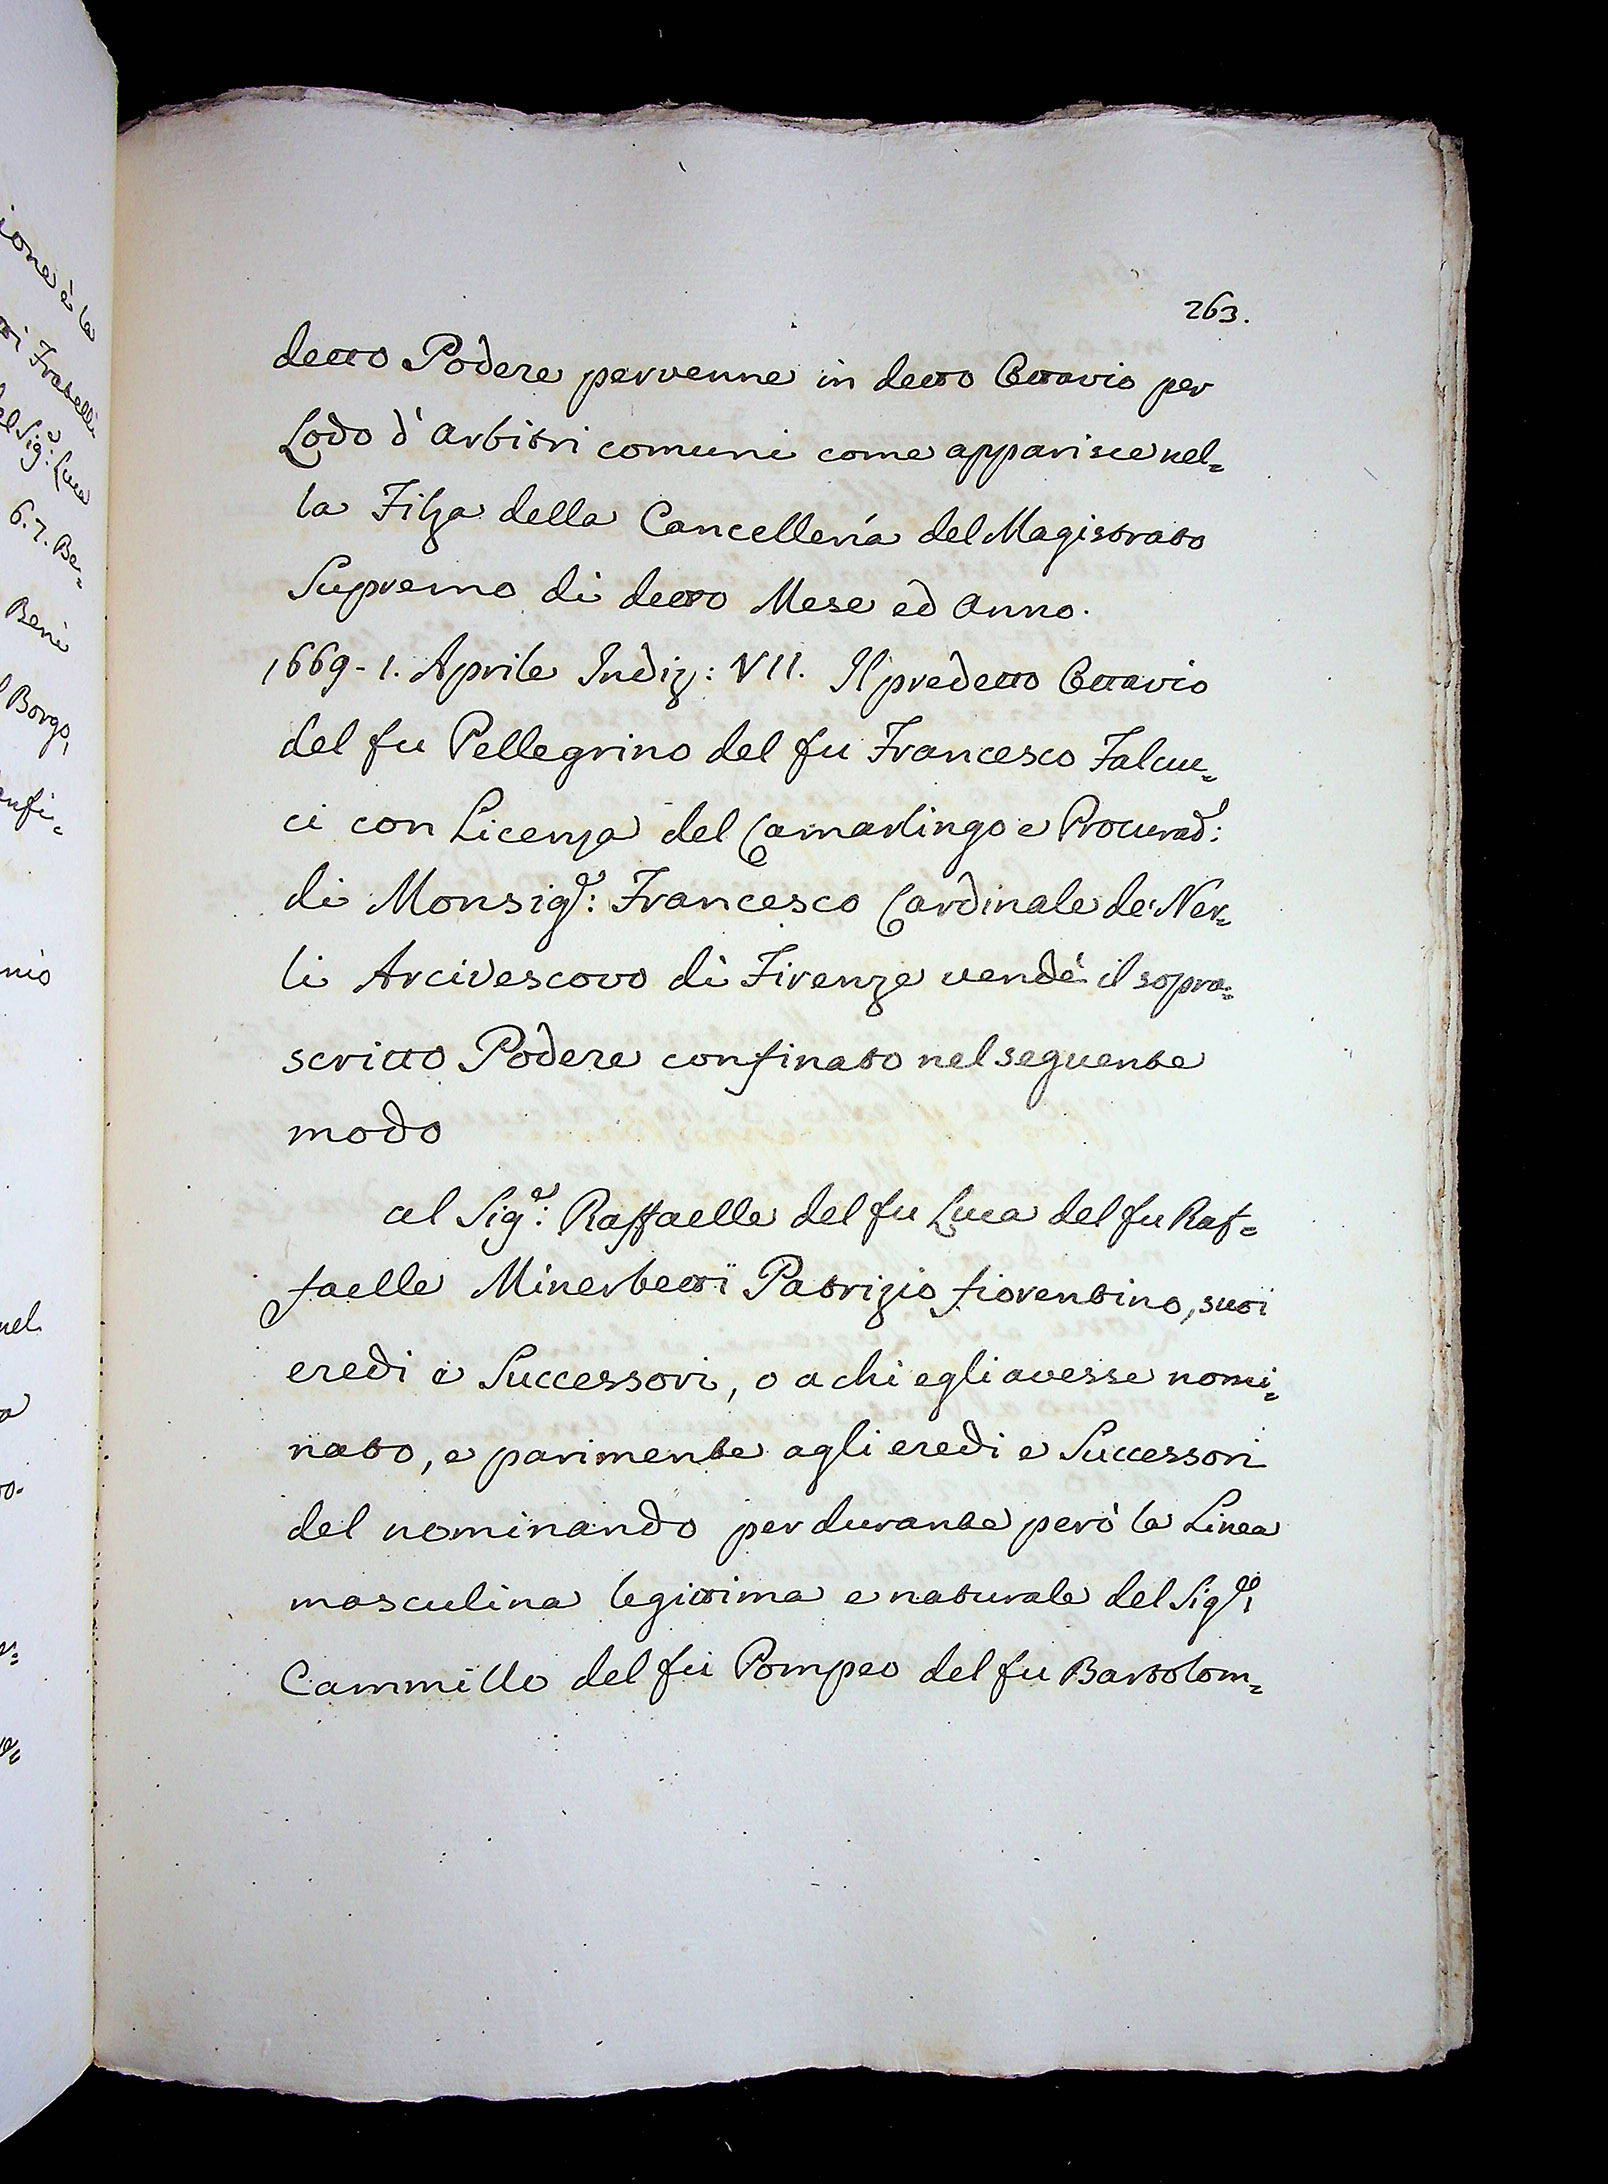 263.
detto Podere pervenne in detto Ottavio per
Lodo d'Arbitri comuni come apparisce nel=
la Filza della Cancelleria del Magistrato
Supremo di detto Mese ed Anno.
1669 - 1. Aprile Indiz: VII. Il predetto Ottavio
del fu Pellegrino del fu Francesco Falcuc=
ci con Licenza del Camarlingo e Procurad:
di Monsigr: Francesco Cardinale de' Ner=
li Arcivescovo di Firenze vendè il sopra=
scritto Podere confinato nel seguente
modo
al Sigr: Raffaelle del fu Luca del fu Raf=
faelle Minerbetti Patrizio fiorentino, suoi
eredi e Successori, o a chi egli avesse nomi=
nato, e parimente agli eredi e Successori
del nominando per durante però la Linea
masculina legittima e naturale del Sigre:
Cammillo del fu Pompeo del fu Bartolom=
ione è la
Fraselli
el Sigr: Luca
6. 7. Be=
Beni
Borgo,
onfi=
nio
nel